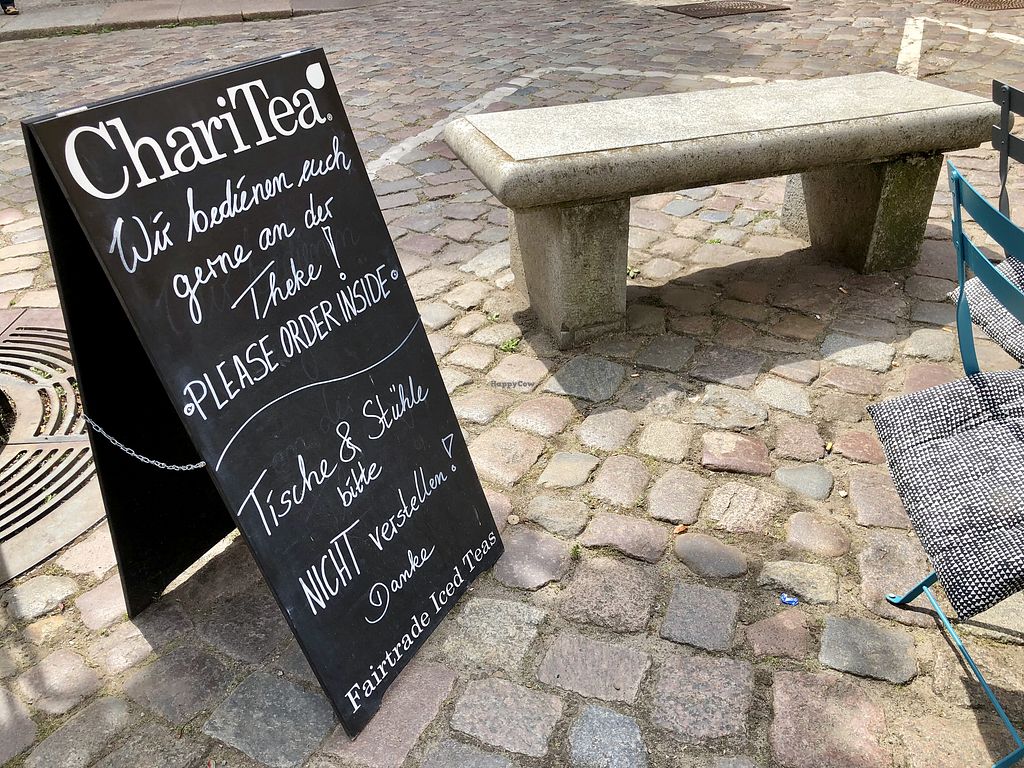 ChariTea®
Wir bedienen euch
gerne an der
Theke!
PLEASE ORDER INSIDE
Tische & Stühle
bitte
NICHT verstellen!
Danke
Fairtrade Iced Teas
HappyCow